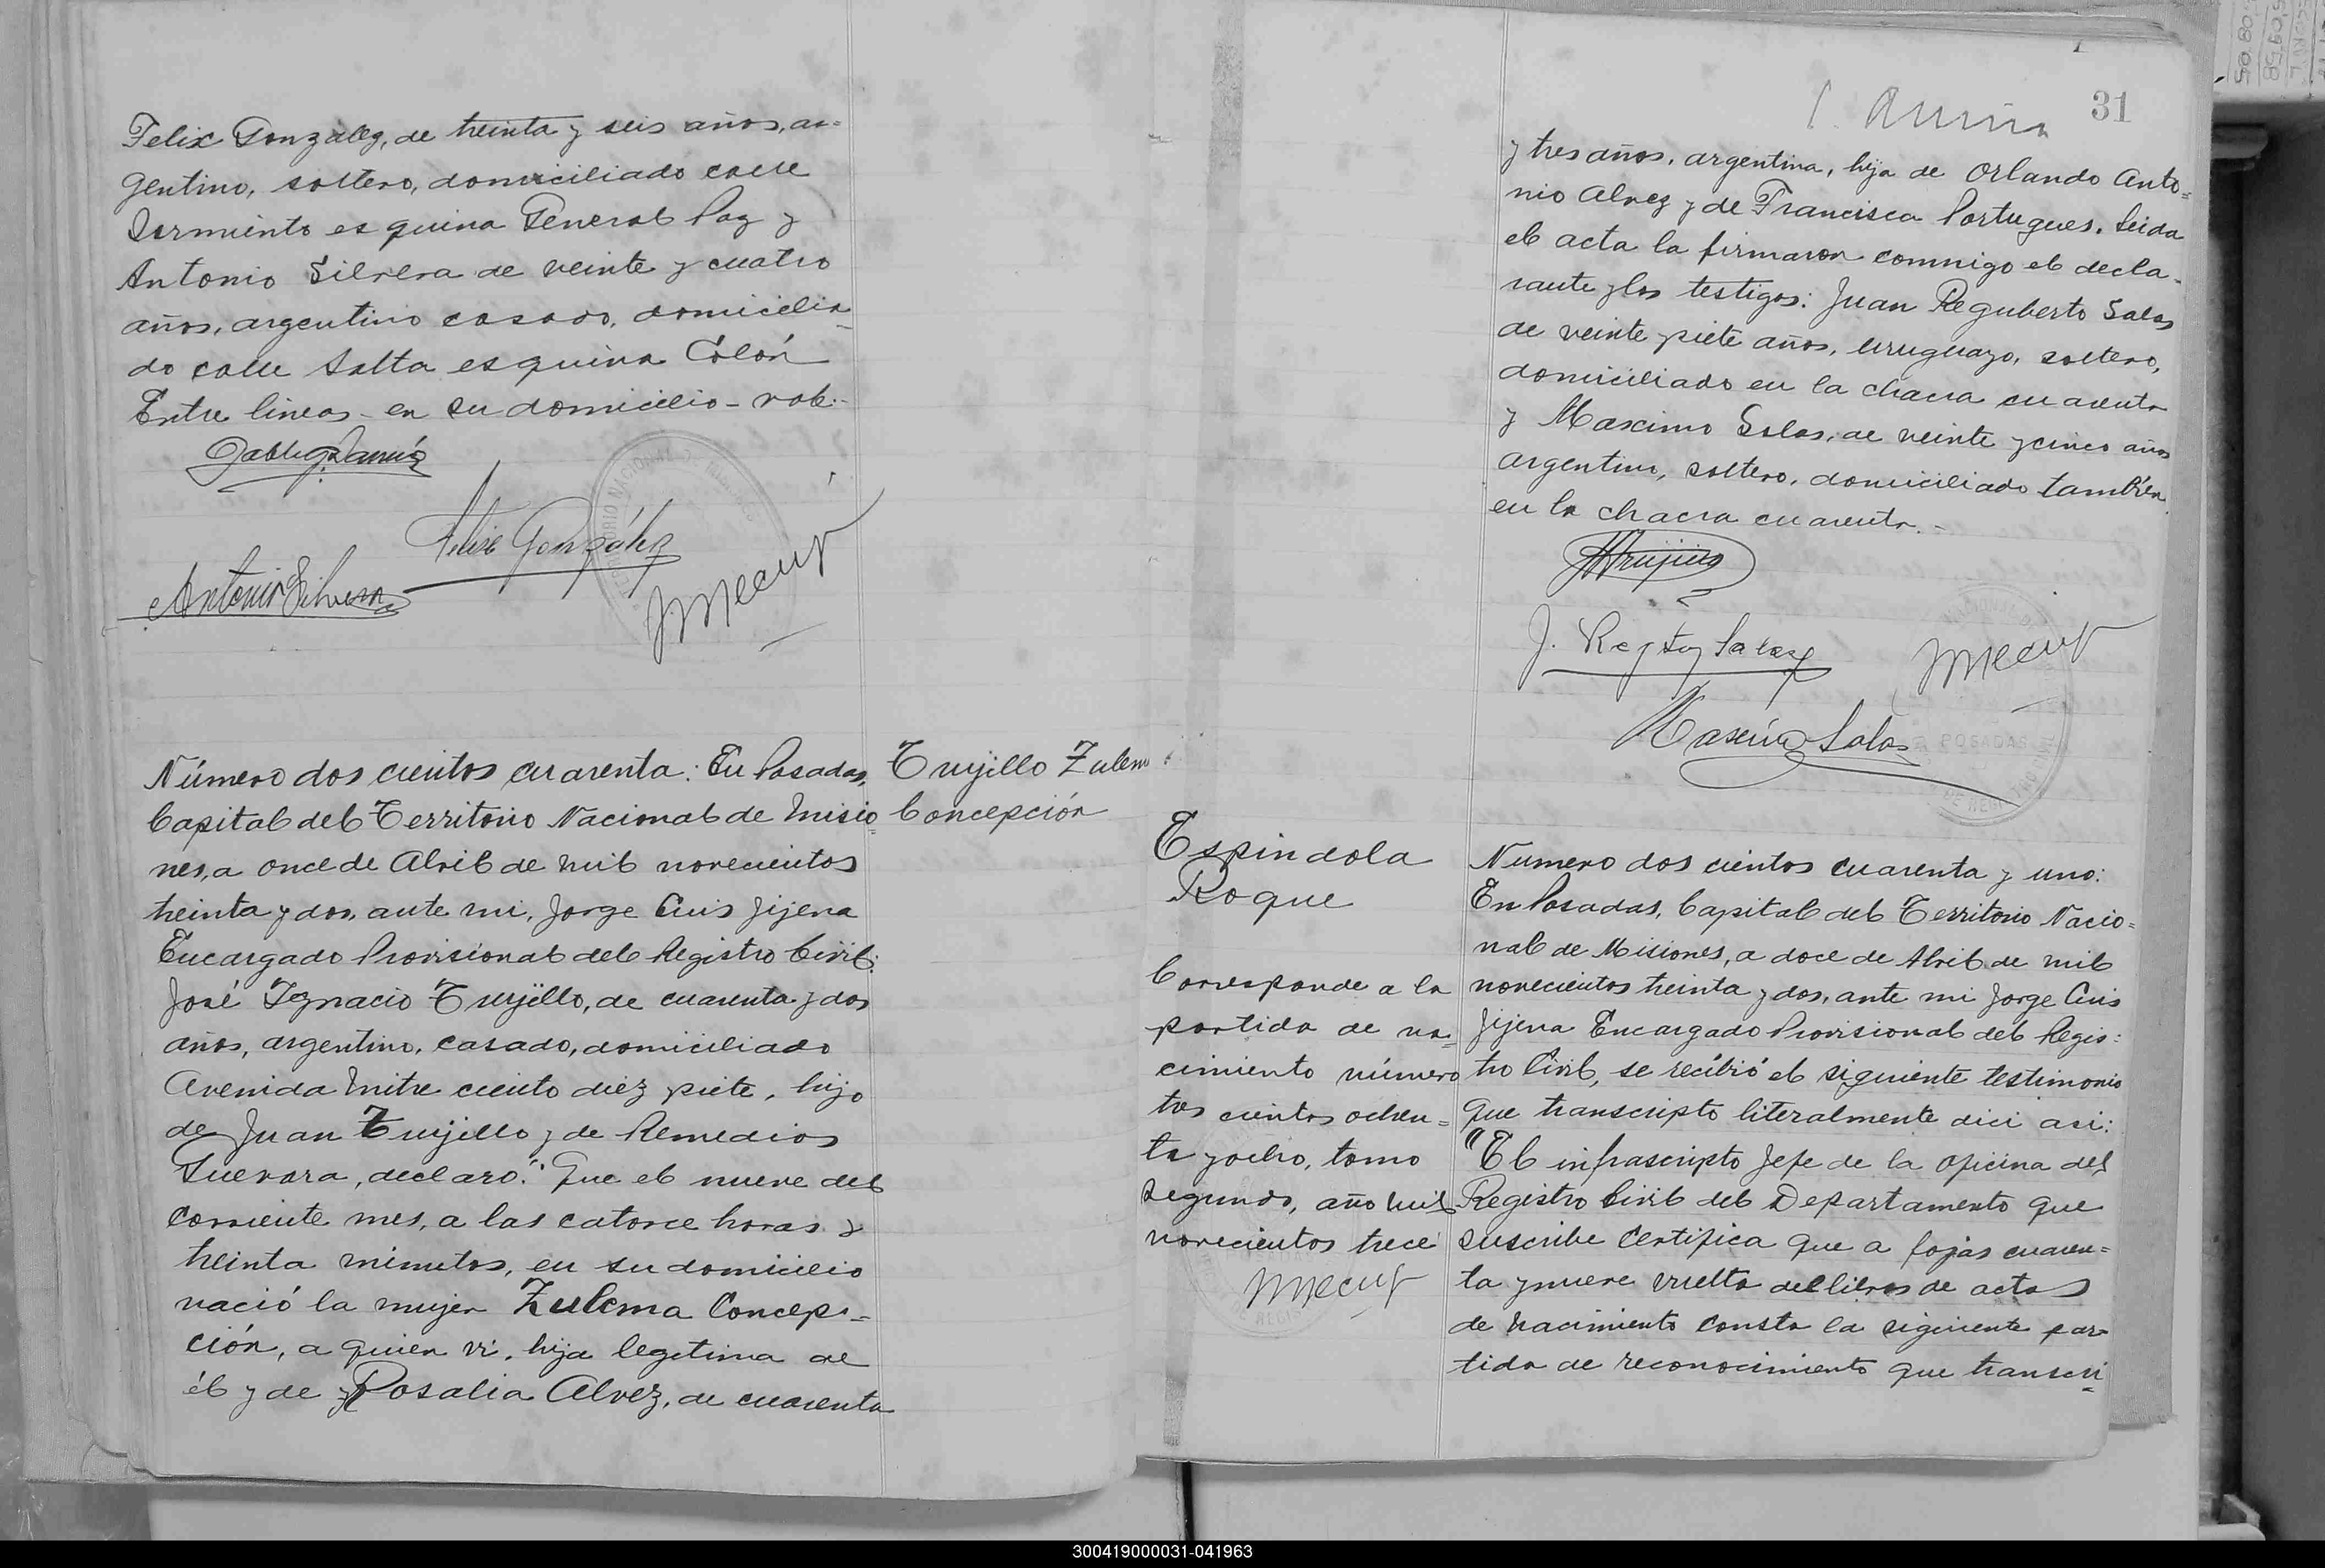 Felix Gonzalez, de treinta y seis años, ar-
gentino, soltero, domiciliado calle
Sarmiento esquina General Paz y
Antonio Silvera de veinte y cuatro
años, argentino casado, domicilia-
do calle Salta esquina Colón
Entre lineas - en su domicilio - vale.-
Felix González
Antonio Silvera
Número dos cientos cuarenta: En Posadas,
Capital del Territorio Nacional de Misio-
nes, a once de Abril de mil novecientos
treinta y dos, ante mi, Jorge Luis Jijena
Encargado Provisional del Registro Civil:
José Ignacio Trujillo, de cuarenta y dos
años, argentino, casado, domiciliado
Avenida Mitre ciento diez y siete, hijo
de Juan Trujillo y de Remedios
Guevara, declaró: Que el nueve del
corriente mes, a las catorce horas y
treinta minutos, en su domicilio
nació la mujer Zulema Concep-
ción, a quien vi, hija legitima de
él y de Rosalia Alvez, de cuarenta
Trujillo Zulema
Concepción
31
y tres años, argentina, hija de Orlando Anto-
nio Alvez y de Francisca Portugues. Leida
el acta la firmaron conmigo el decla-
rante y los testigos: Juan Reguberto Salas
de veinte y siete años, uruguayo, soltero,
domiciliado en la chacra cuarenta
y Maximo Salas, de veinte y cinco años
argentino, soltero, domiciliado también
en la chacra cuarenta.-
JTrujillo
J. Regto Salas
Maximo Salas
POSADAS
Espindola
Roque
Corresponde a la
partida de na-
cimiento número
tres cientos ochen-
ta y ocho, tomo
segundo, año mil
novecientos trece
Numero dos cientos cuarenta y uno:
En Posadas, Capital del Territorio Nacio-
nal de Misiones, a doce de Abril de mil
novecientos treinta y dos, ante mi Jorge Luis
Jijena Encargado Provisional del Regis-
tro Civil, se recibió el siguiente testimonio
que transcripto literalmente dici asi:
"El infrascripto Jefe de la oficina del
Registro Civil del Departamento que
suscribe Certifica que a fojas cuaren-
ta y nueve vuelta del libros de actas
de nacimiento consta la siguiente par-
tida de reconocimiento que transcri-
300419000031-041963